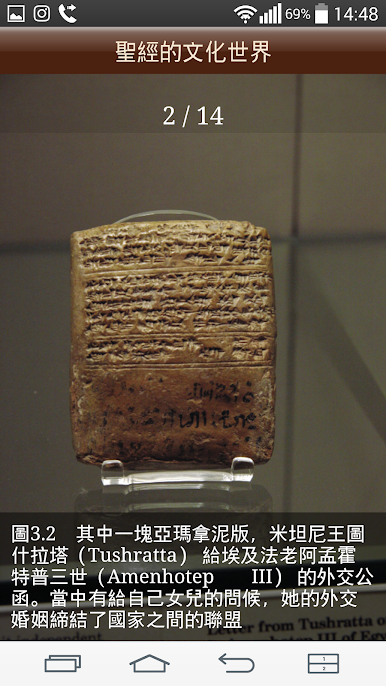 69% 14:48
聖經的文化世界
2 / 14
圖3.2 其中一塊亞瑪拿泥版，米坦尼王圖
什拉塔（Tushratta）給埃及法老阿孟霍
特普三世（Amenhotep III）的外交公
函。當中有給自己女兒的問候，她的外交
婚姻締結了國家之間的聯盟
Letter from Tushratta